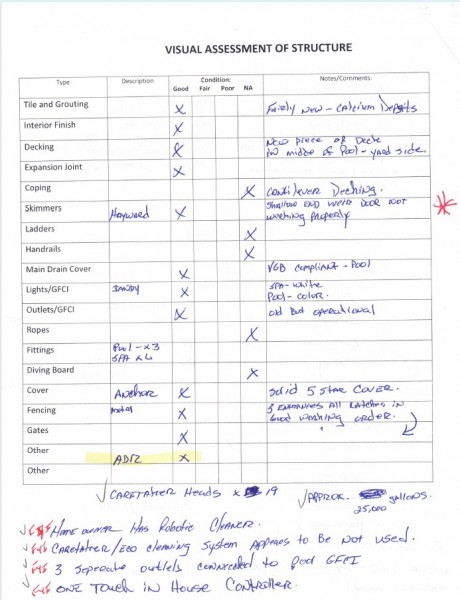 VISUAL ASSESSMENT OF STRUCTURE
Type Description Condition: Notes/Comments:
Good Fair Poor NA
Tile and Grouting X Fairly New - Calcium Deposits
Interior Finish X
Decking X New piece of Deck
in middle of Pool - yard side.
Expansion Joint X
Coping X Cantilever Decking.
Skimmers Hayward X Shallow End Weir Door not
working properly
Ladders X
Handrails X
Main Drain Cover X VGB Compliant - Pool
Lights/GFCI X SPA - White
Pool - color.
Outlets/GFCI X Old But operational
Ropes X
Fittings Pool - x3
SPA x4
Diving Board X
Cover Anchor X Solid 5 Star Cover.
Fencing Metal X 3 Entrances All Latches in
Good Working order.
Gates X
Other X
Other
✓ Caretaker Heads x 19 ✓ Approx. gallons.
25,000
✓ Home owner Has Robotic Cleaner.
✓ Caretaker/Eco cleaning System Appears to Be Not used.
✓ 3 Seperate outlets connected to Pool GFCI
✓ ONE Touch in House Controller.